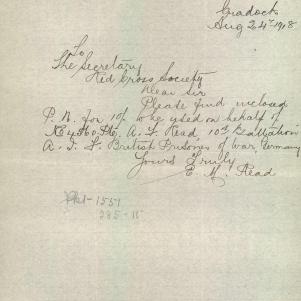 Cradock
Aug 24th 1918
To
The Secretary
Red Cross Society
Dear Sir
Please find inclosed
P. N. for 10/ to be used on behalf of
No 4560, Pte. A. L. Read, 10th Battalion
A. I. F. British Prisoner of War, Germany
Yours Truly
E. M. Read
1551
285-11